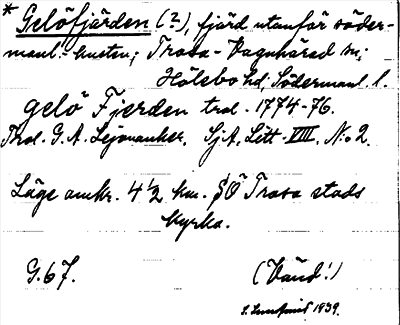 * Gelöfjärden (2), fjärd utanför söder-
manl. kusten; Trosa-Vagnhärad sn;
Hölebo hd; Södermanl. l.
gelö Fjerden trol. 1774-76.
Trol. G. A. Lejonanker. SjA. Litt. VIII. No 2.
Läge omkr. 4 1/2 km. SÖ Trosa stads
kyrka.
G. 67. (Vänd!)
S. Lundqvist 1939.